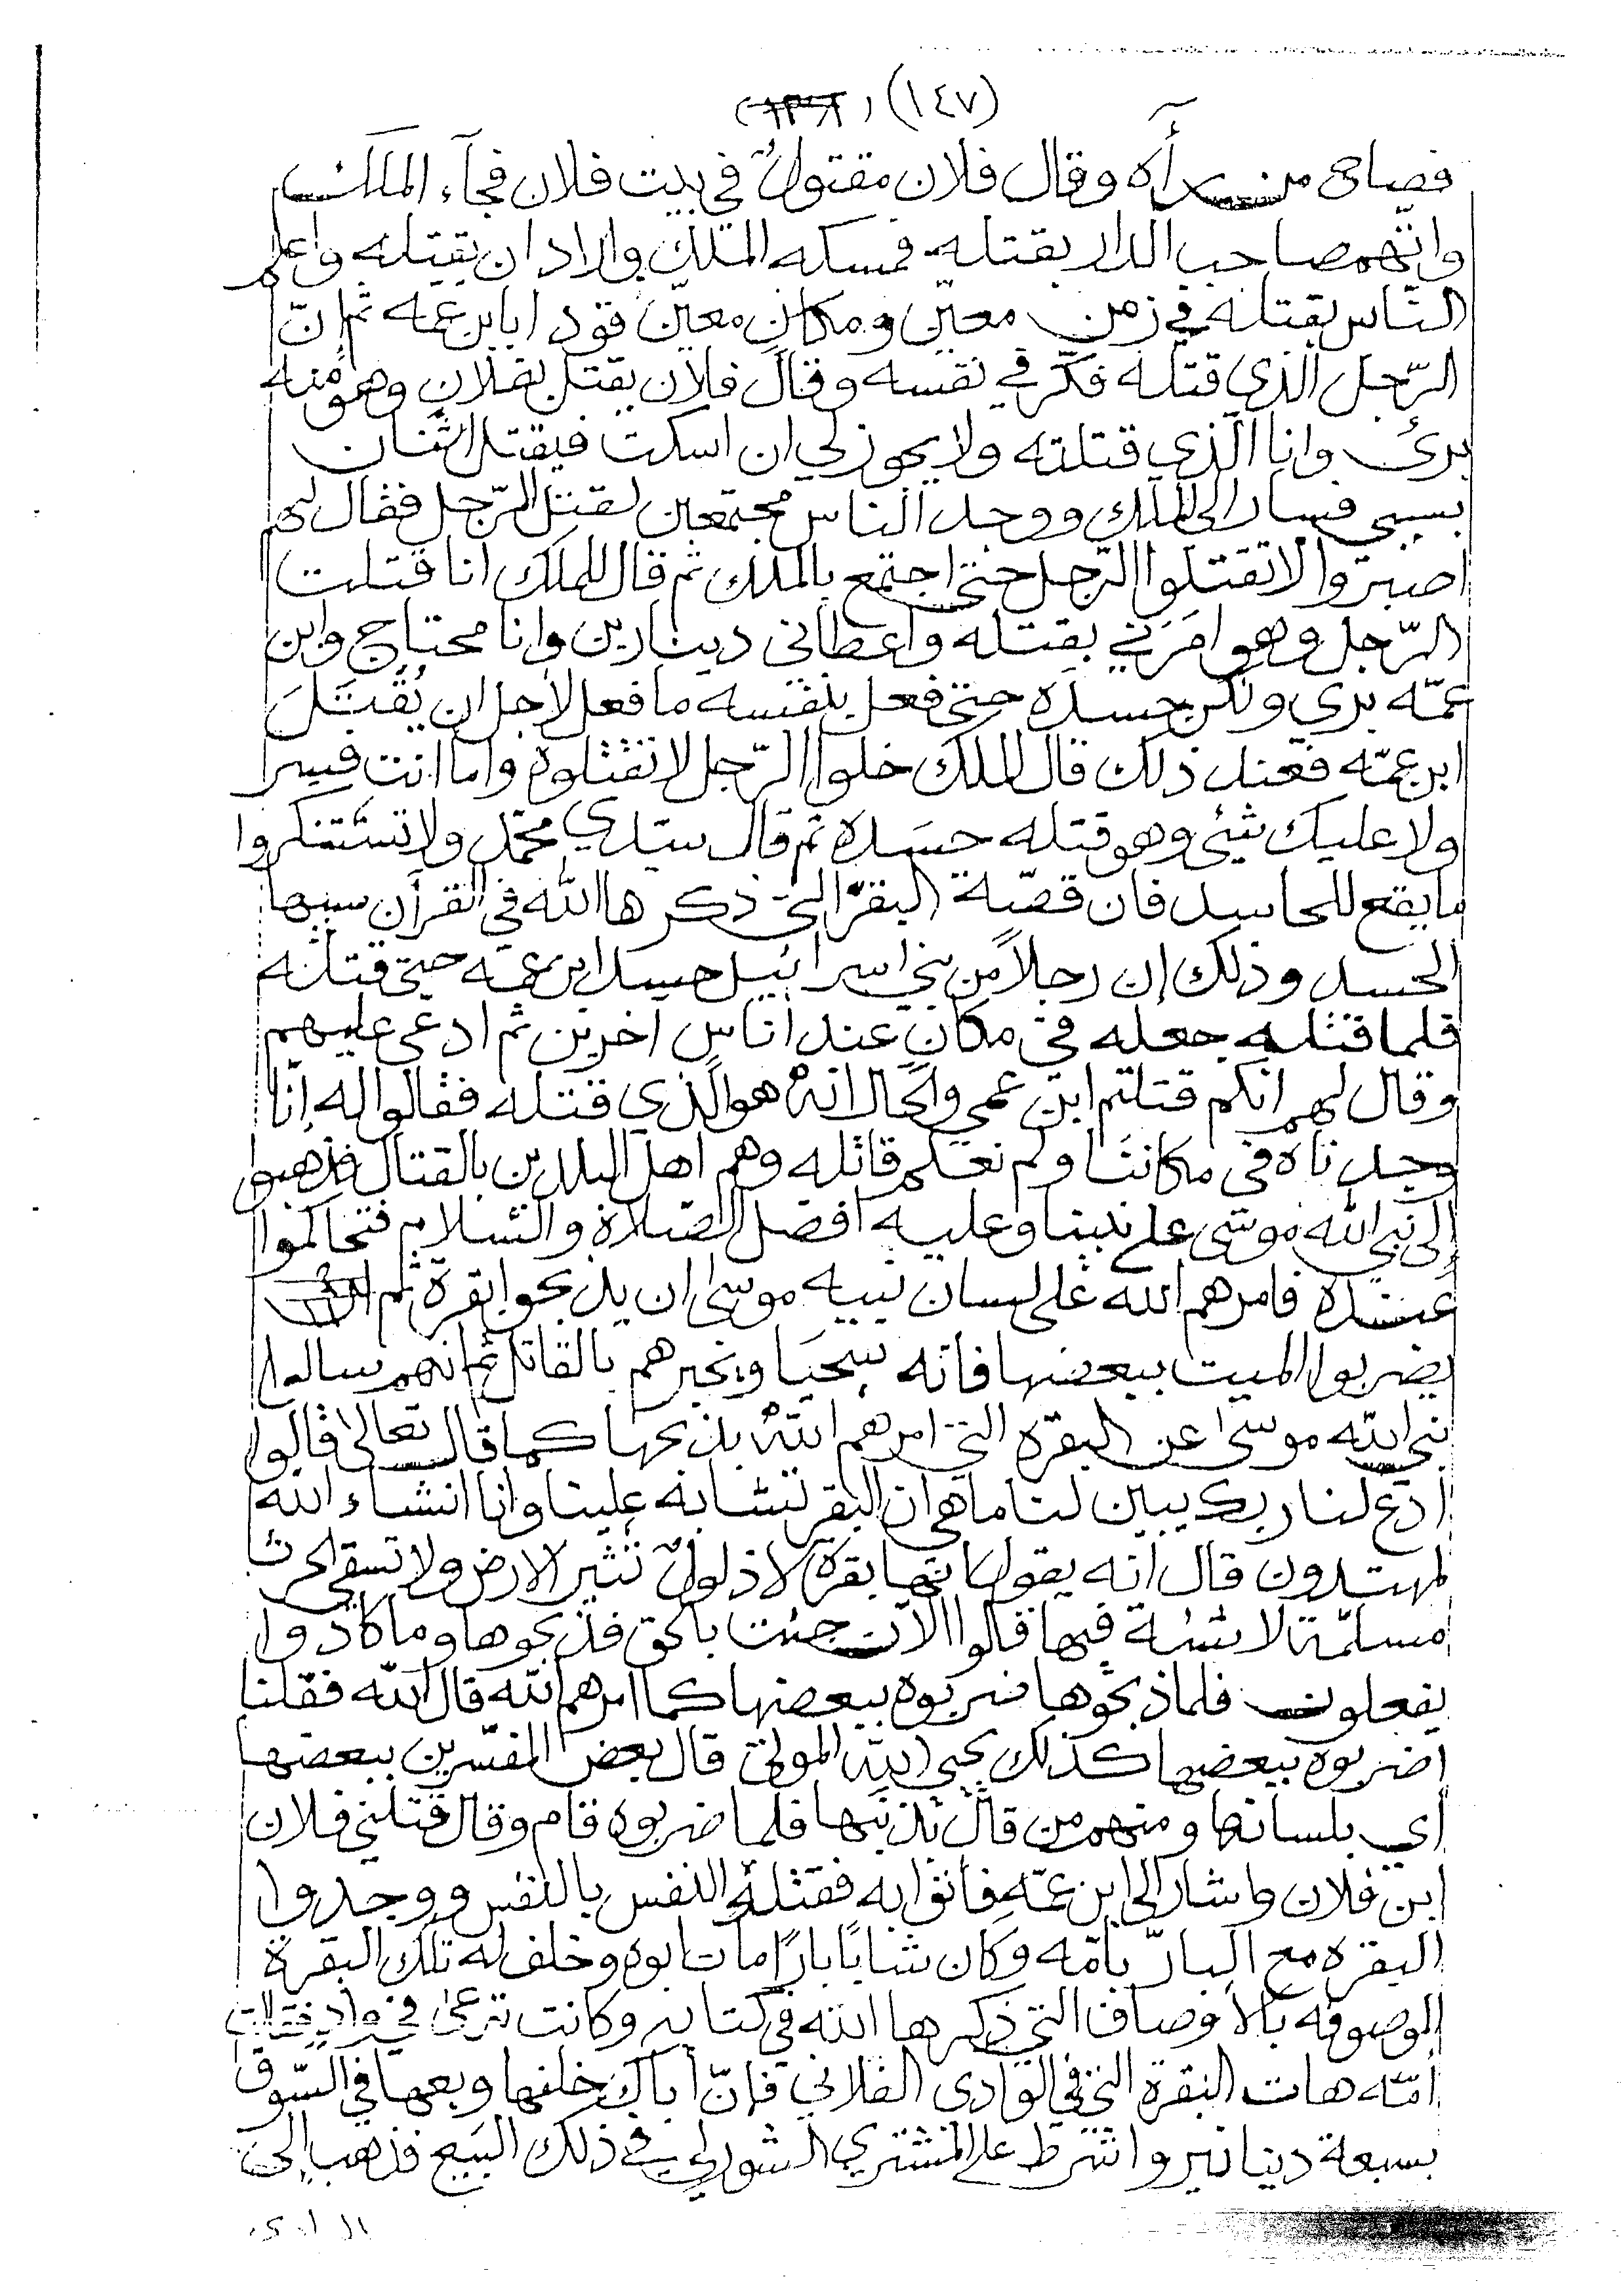 (١٤٧) (١٣٩٢)
فصاح من رآه وقال فلان مقتولٌ في بيت فلان فجآء الملك
واتّهم صاحب الدار بقتله فمسكه الملك واراد ان يقتله واعلم
النّاس بقتله في زمن معيّن ومكان معيّن قودا بابن عمه ثم انّ
الرّجل الذي قتله فكّر في نفسه وقال فلان يقتل بفلان وهو منه
برئ وانا الّذي قتلته ولا يجوز لي ان اسكت فيقتل اثنان
بسببي فسار الى الملك ووجد النّاس مجتمعين لقتل الرّجل فقال لهم
اصبروا لا تقتلوا الرّجل حتى اجتمع بالملك ثم قال للملك انا قتلت
الرّجل وهو امَرَني بقتله واعطاني دينارين وانا محتاج وابن
عمّه بري ولكن حسده حتى فعل بنفسه ما فعل لأجل ان يُقتَلَ
ابن عمّه فعند ذلك قال الملك خلوا الرّجل لا تقتلوه واما انت فسر
ولا عليك شئي وهو قتله حسَده ثم قال سيّدي محمّد ولا تستنكروا
ما يقع للحاسد فان قصّة البقرّ التي ذكرها الله في القرأن سببها
الحسد وذلك إن رجلاً من بني اسرائيل حسد ابن عمّه حتى قتله
فلما قتله جعله في مكان عند اناس اخرين ثم ادعى عليهم
وقال لهم انكم قتلتم ابن عمي والحال انهُ هو الّذي قتله فقالوا له إنّا
وجدناه في مكاننا ولم نعلم قاتله وهم اهل البلدين بالقتال فذهبوا
إلى نبي الله موسى على نبينا وعليه افضل الصّلاة والسّلام فتحاكموا
عنده فامرهم الله على لسان نبيه موسى ان يذبحوا بقرة ثم
يضربوا الميت ببعضها فانه سيحيَا ويخبرهم بالقاتل ثم انهم سالوا
نبي الله موسى عن البقره التي امرهم اللهُ بذبحها كما قال تعالى قالوا
ادع لنا ربك يبين لنا ما هي ان البقر تشابه علينا وانا انشاء الله
لمهتدون قال انه يقول انّها بقرةٌ لا ذلولٌ تثير الارض ولا تسقى الحرث
مسلّمة لا شية فيها قالوا الآن جئت بالحق فذبحوها وما كادوا
يفعلون فلما ذبحُوها ضربوه ببعضها كما امرهم الله قال الله فقلنا
اضربوه ببعضها كذلك يحيي الله الموتى قال بعض المفسّرين ببعضها
أي بلسانها ومنهم من قال بذنَبها فلما ضربوه قام وقال قتلني فلان
ابن فلان واشار الى ابن عمّه فأتوا به فقتلهُ النفس بالنفس ووجدوا
البقره مع البارّ بامّه وكان شابًا بارًا مات ابوه وخلف له تلك البقرة
الموصوفه بالأوصاف التي ذكرها الله في كتابه وكانت ترعى في واد فقالت
امّه هات البقرة التي في الوادى الفلاني فإنّ أباك خلفها وبعها في السّوق
بسبعة دنانير واشرط على المشتري الشور لي في ذلك البَيع فذهب الى
الوادي